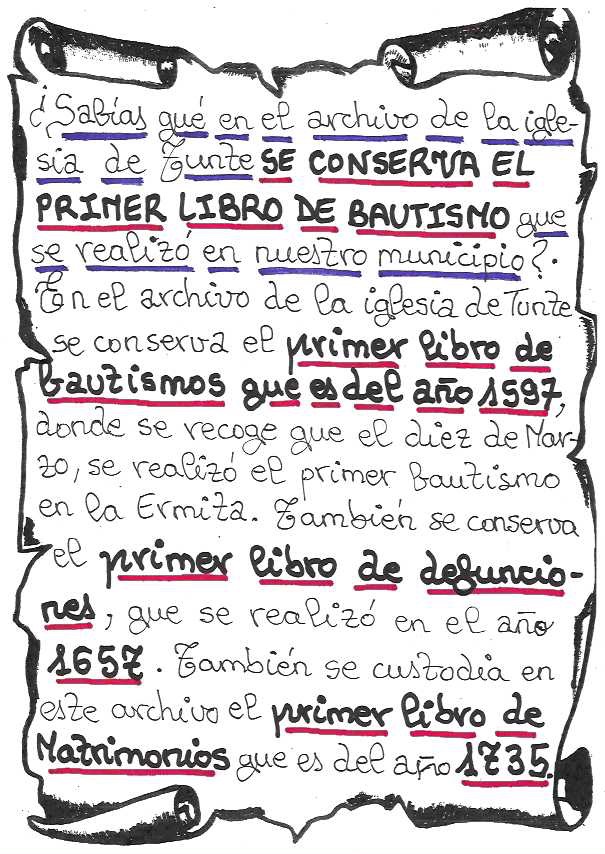 ¿Sabías qué en el archivo de la igle-
sia de Tunte SE CONSERVA EL
PRIMER LIBRO DE BAUTISMO que
se realizó en nuestro municipio?.
En el archivo de la iglesia de Tunte
se conserva el primer libro de
bautismos que es del año 1597,
donde se recoge que el diez de Mar-
zo, se realizó el primer bautismo
en la Ermita. También se conserva
el primer libro de defuncio-
nes, que se realizó en el año
1657. También se custodia en
este archivo el primer libro de
Matrimonios que es del año 1735.